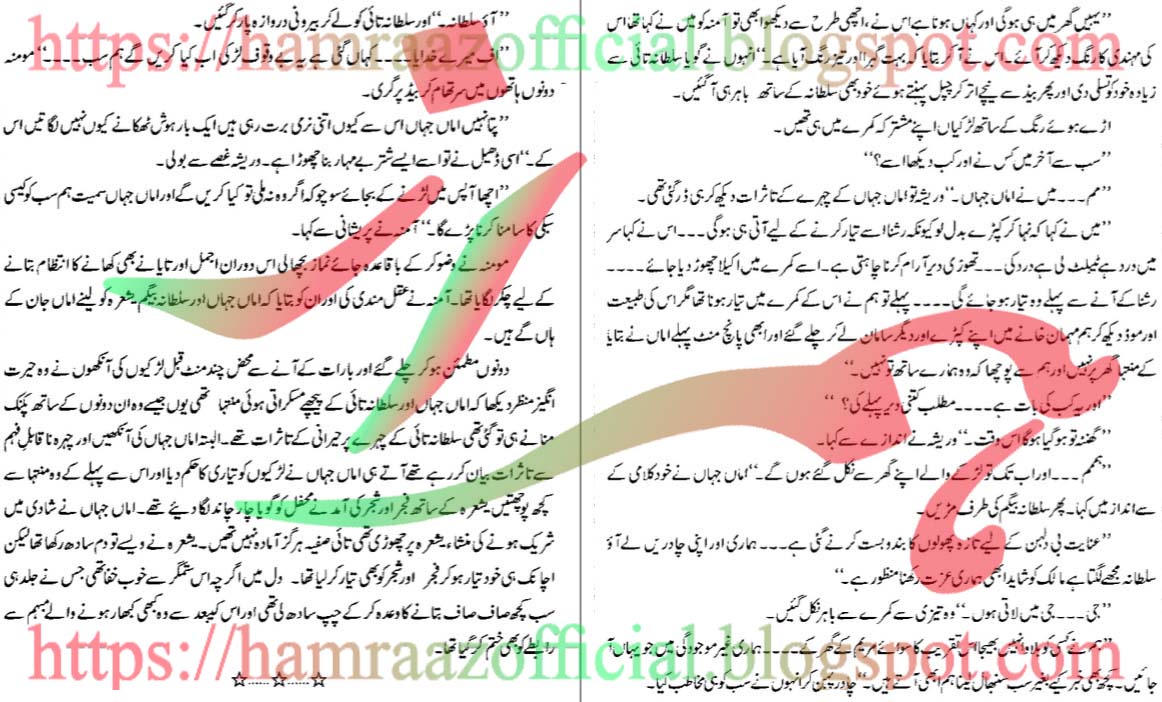 https://hamraazofficial.blogspot.com
’’یہیں گھر میں ہی ہوگی اور کہاں ہونا ہے اس نے، اچھی طرح سے دیکھو ابھی تو آمنہ کو میں نے کہا تھا اس
کی مہندی کا رنگ دیکھ کر آئے۔ اس نے آ کر بتایا کہ بہت گہرا اور تیز رنگ آیا ہے۔‘‘ انہوں نے گویا سلطانہ تائی سے
زیادہ خود کو تسلی دی اور پھر بیڈ سے نیچے اتر کر چپل پہنتے ہوئے خود بھی سلطانہ کے ساتھ باہر ہی آ گئیں۔
اڑے ہوئے رنگ کے ساتھ لڑکیاں اپنے مشترکہ کمرے میں ہی تھیں۔
’’سب سے آخر میں کس نے اور کب دیکھا اسے؟‘‘
’’مم۔۔۔میں نے اماں جہاں۔‘‘ وریشہ تو اماں جہاں کے چہرے کے تاثرات دیکھ کر ہی ڈر گئی تھی۔
’’میں نے کہا کہ نہا کر کپڑے بدل لو کیونکہ رشنا اسے تیار کرنے کے لیے آتی ہی ہوگی۔۔۔اس نے کہا سر
میں درد ہے ٹیبلٹ لی ہے درد کی۔۔۔تھوڑی دیر آرام کرنا چاہتی ہے۔اسے کمرے میں اکیلا چھوڑ دیا جائے۔۔۔۔
رشنا کے آنے سے پہلے وہ تیار ہو جائے گی۔۔۔۔پہلے تو ہم نے اس کے کمرے میں تیار ہونا تھا مگر اس کی طبیعت
اور موڈ دیکھ کر ہم مہمان خانے میں اپنے کپڑے اور دیگر سامان لے کر چلے گئے اور ابھی پانچ منٹ پہلے اماں نے بتایا
کے منتہا گھر پر نہیں اور ہم سے پوچھا کہ وہ ہمارے ساتھ تو نہیں۔‘‘
’’اور یہ کب کی بات ہے۔۔۔۔مطلب کتنی دیر پہلے کی؟‘‘
’’گھنٹہ تو ہو گیا ہوگا اس وقت۔‘‘ وریشہ نے اندازے سے کہا۔
’’ہممم۔۔۔اور اب تک تو لڑکے والے اپنے گھر سے نکل گئے ہوں گے۔‘‘ اماں جہاں نے خود کلامی کے
سے انداز میں کہا۔ پھر سلطانہ بیگم کی طرف مڑیں۔
’’عنایت بی دلہن کے لیے تازہ پھولوں کا بندوبست کرنے گئی ہے۔۔۔ہماری اور اپنی چادریں لے آؤ
سلطانہ مجھے لگتا ہے مالک کو شاید ابھی ہماری عزت رکھنا منظور ہے۔‘‘
’’جی۔۔۔جی میں لاتی ہوں۔‘‘ وہ تیزی سے کمرے سے باہر نکل گئیں۔
’’ہم نے کسی کو بلاوا نہیں بھیجا اس تقریب کا سوائے مریم کے گھر کے۔۔۔۔ہماری غیر موجودگی میں جو یہاں آ
جائیں۔ کچھ بھی خبر کیے بغیر سب سنبھال لینا ہم ابھی آتے ہیں۔‘‘ چادر پہن کر انہوں نے سب کو ہی مخاطب کیا۔
’’آؤ سلطانہ۔‘‘ اور سلطانہ تائی کو لے کر بیرونی دروازہ پار کر گئیں۔
’’اف میرے خدایا۔۔۔کہاں گئی ہے یہ بے وقوف لڑکی اب کیا کریں گے ہم سب۔۔۔۔‘‘ مومنہ
دونوں ہاتھوں میں سر تھام کر بیڈ پر گری۔
’’پتا نہیں اماں جہاں اس سے کیوں اتنی نرمی برت رہی ہیں ایک بار ہوش ٹھکانے کیوں نہیں لگاتیں اس
کے۔‘‘ اسی ڈھیل نے تو اسے ایسے شتر بے مہار بنا چھوڑا ہے۔ وریشہ غصے سے بولی۔
’’اچھا آپس میں لڑنے کے بجائے سوچو کہ اگر وہ نہ ملی تو کیا کریں گے اور اماں جہاں سمیت ہم سب کو کیسی
سبکی کا سامنا کرنا پڑے گا۔‘‘ آمنہ نے پریشانی سے کہا۔
مومنہ نے وضو کر کے باقاعدہ جائے نماز بچھا لی اس دوران اجمل اور تایا نے بھی کھانے کا انتظام بتانے
کے لیے چکر لگایا تھا۔ آمنہ نے عقل مندی کی اور ان کو بتایا کہ اماں جہاں اور سلطانہ بیگم یشعرہ کو لینے اماں جان کے
ہاں گے ہیں۔
دونوں مطمئن ہو کر چلے گئے اور بارات کے آنے سے محض چند منٹ قبل لڑکیوں کی آنکھوں نے وہ حیرت
انگیز منظر دیکھا کہ اماں جہاں اور سلطانہ تائی کے پیچھے مسکراتی ہوئی منتہا تھی یوں جیسے وہ ان دونوں کے ساتھ پکنک
منانے ہی تو گئی تھی سلطانہ تائی کے چہرے پر حیرانی کے تاثرات تھے۔ البتہ اماں جہاں کی آنکھیں اور چہرہ ناقابل فہم
سے تاثرات بیان کر رہے تھے آتے ہی اماں جہاں نے لڑکیوں کو تیاری کا حکم دیا اور اس سے پہلے کے وہ منتہا سے
کچھ پوچھتیں یشعرہ کے ساتھ فجر اور شجر کی آمد نے محفل کو گویا چار چاند لگا دیئے تھے۔ اماں جہاں نے شادی میں
شریک ہونے کی منشاء یشعرہ پر چھوڑی تھی تائی صفیہ ہرگز آمادہ نہیں تھیں۔ یشعرہ نے ویسے تو دم سادھ رکھا تھا لیکن
اچانک ہی خود تیار ہو کر فجر اور شجر کو بھی تیار کر لیا تھا۔ دل میں اگرچہ اس ستمگر سے خوب خفا تھی جس نے جلد ہی
سب کچھ صاف صاف بتانے کا وعدہ کر کے چپ سادھ لی تھی اور اس کے بعد سے وہ کبھی کبھار ہونے والے مبہم سے
رابطے کو بھی ختم کر گیا تھا۔
☆......☆......☆
https://hamraazofficial.blogspot.com